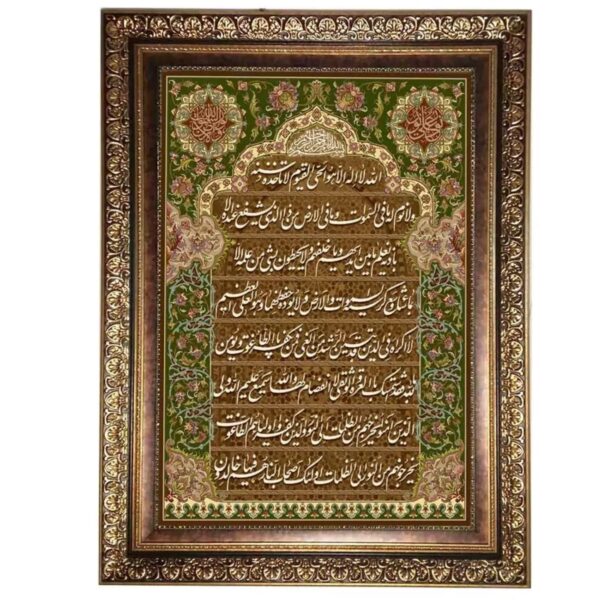 الله لا اله الا هو الحی القیوم لا تاخذه سنة
ولا نوم له ما فی السموات وما فی الارض من ذا الذی یشفع عنده الا
باذنه یعلم ما بین ایدیهم وما خلفهم ولا یحیطون بشئ من علمه الا
بما شاء وسع کرسیه السموات والارض ولا یوده حفظهما وهو العلی العظیم
لا اکراه فی الدین قد تبین الرشد من الغی فمن یکفر بالطاغوت ویومن
بالله فقد استمسک بالعروة الوثقی لا انفصام لها والله سمیع علیم الله ولی
الذین آمنوا یخرجهم من الظلمات الی النور والذین کفروا اولیاوهم الطاغوت
یخرجونهم من النور الی الظلمات اولئک اصحاب النار هم فیها خالدون